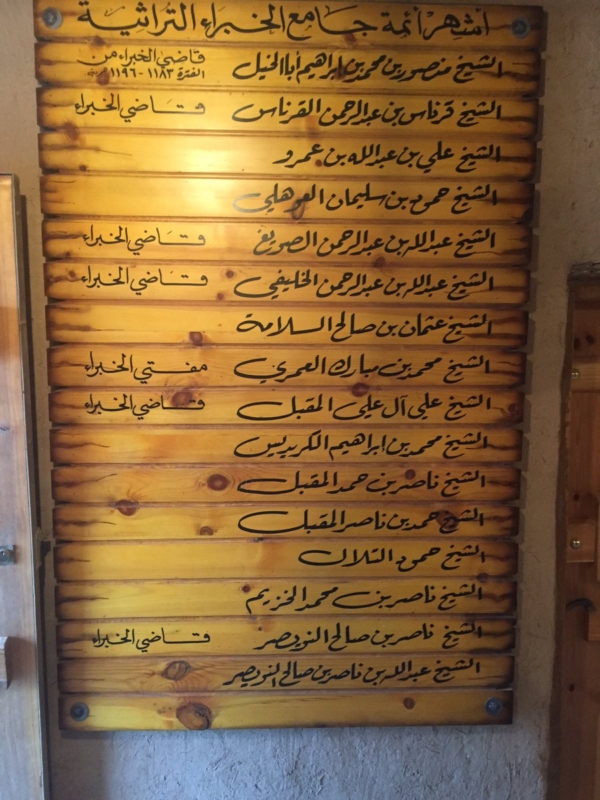 أشهر أئمة جامع الخبراء التراثية
الشيخ منصور بن محمد بن ابراهيم أباالخيل قاضي الخبراء من الفترة ١١٨٣ - ١١٩٦
الشيخ قرناس بن عبدالرحمن القرناس قاضي الخبراء
الشيخ علي بن عبدالله بن عمرو
الشيخ حمود بن سليمان العوهلي
الشيخ عبدالله بن عبدالرحمن الصويغ قاضي الخبراء
الشيخ عبدالله بن عبدالرحمن الخليفي قاضي الخبراء
الشيخ عثمان بن صالح السلامة
الشيخ محمد بن مبارك العمري مفتي الخبراء
الشيخ علي آل علي المقبل قاضي الخبراء
الشيخ محمد بن ابراهيم الكريديس
الشيخ ناصر بن حمد المقبل
الشيخ حمد بن ناصر المقبل
الشيخ حمود التلال
الشيخ ناصر بن محمد الخزيم
الشيخ ناصر بن صالح النويصر قاضي الخبراء
الشيخ عبدالله بن ناصر بن صالح النويصر